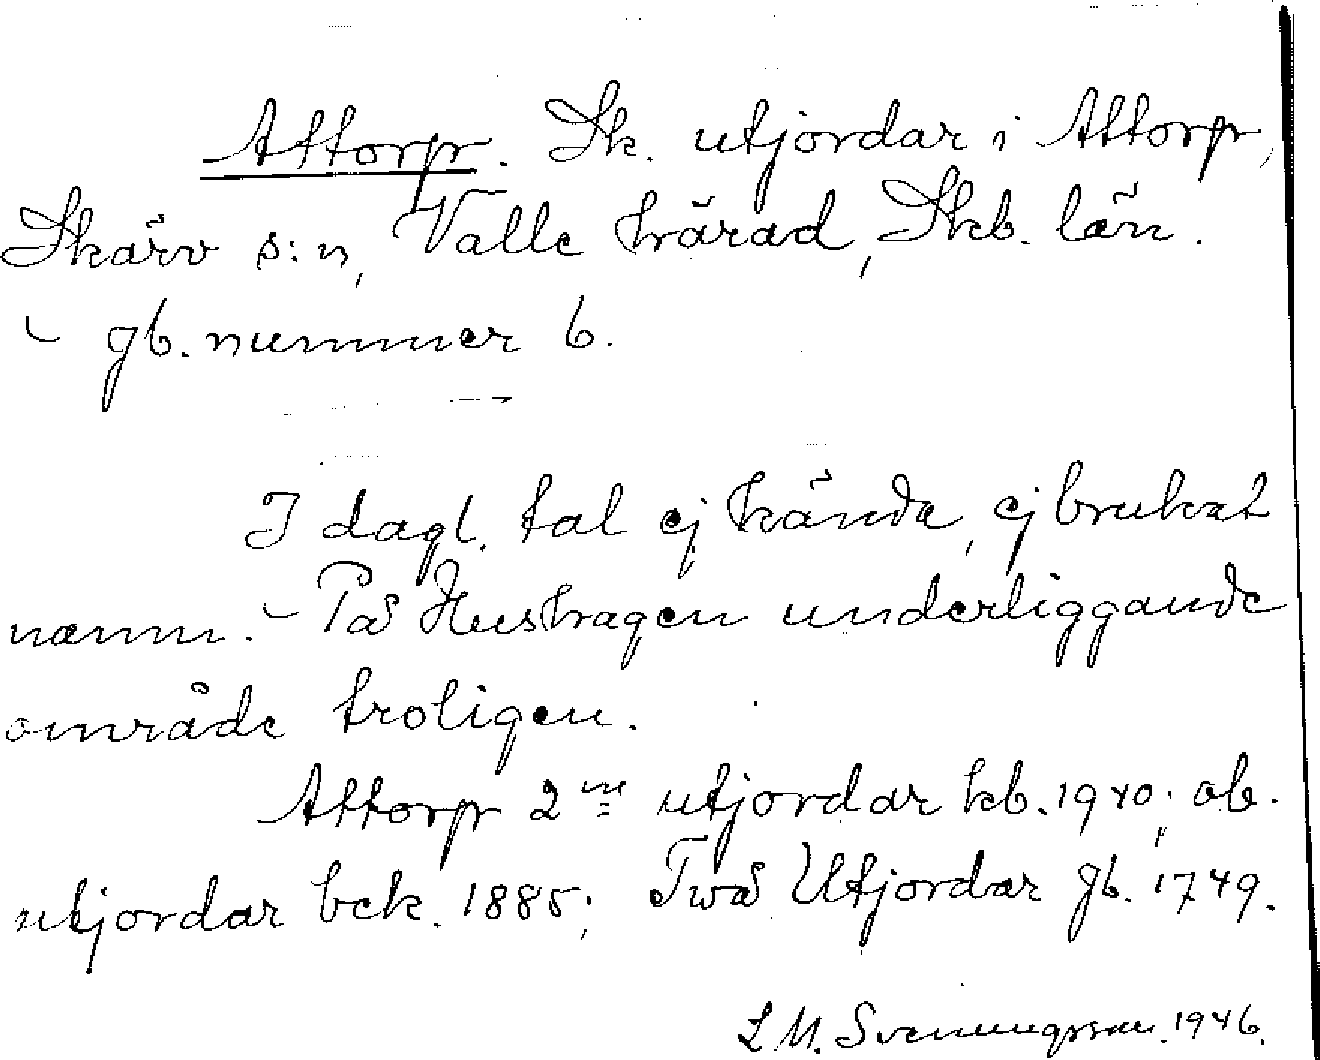 Attorp. Sk. utjordar i Attorp,
Skärv s:n, Valle härad, Skb. län.
– gb. nummer 6.
I dagl. tal ej kända, ej brukat
namn. – På Hushagen underliggande
område troligen.
Attorp 2ne utjordar kb. 1940; ab.
utjordar bek. 1885; Twå Utjordar gb. 1749.
L M. Svenungsson. 1946.